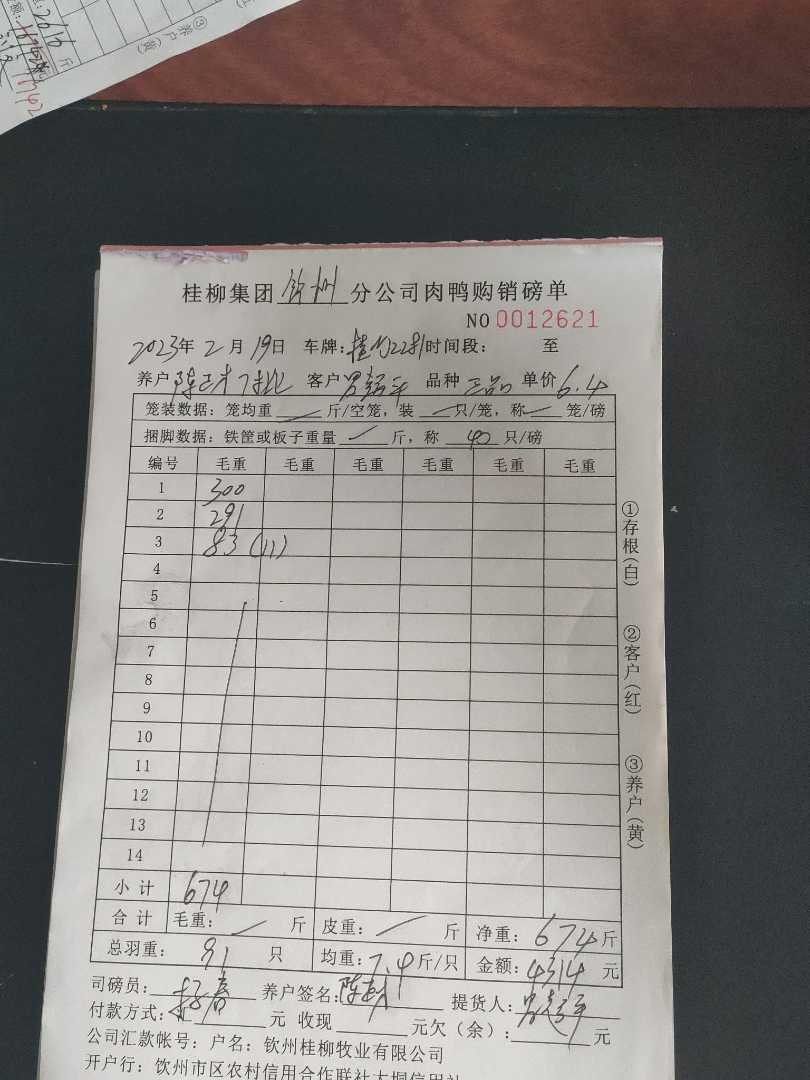 2016 斤
③养户(黄)
桂柳集团 钦州 分公司肉鸭购销磅单
NO 0012621
2023年 2 月 19日 车牌: 2281 时间段: 至
养户 陈 客户 品种 三品 单价 6.4
笼装数据: 笼均重 斤/空笼, 装 只/笼, 称 笼/磅
捆脚数据: 铁筐或板子重量 斤, 称 40 只/磅
编号 毛重 毛重 毛重 毛重 毛重 毛重
1 300
2 291
3 83 (11)
4
5
6
7
8
9
10
11
12
13
14
小计 674
合计 毛重: 斤 皮重: 斤 净重: 674 斤
总羽重: 91 只 均重: 7.4 斤/只 金额: 4314 元
司磅员: 养户签名: 陈 提货人:
付款方式: 元 收现 元欠(余): 元
公司汇款帐号: 户名: 钦州桂柳牧业有限公司
开户行: 钦州市区农村信用合作联社大垌信用社
①存根(白)
②客户(红)
③养户(黄)